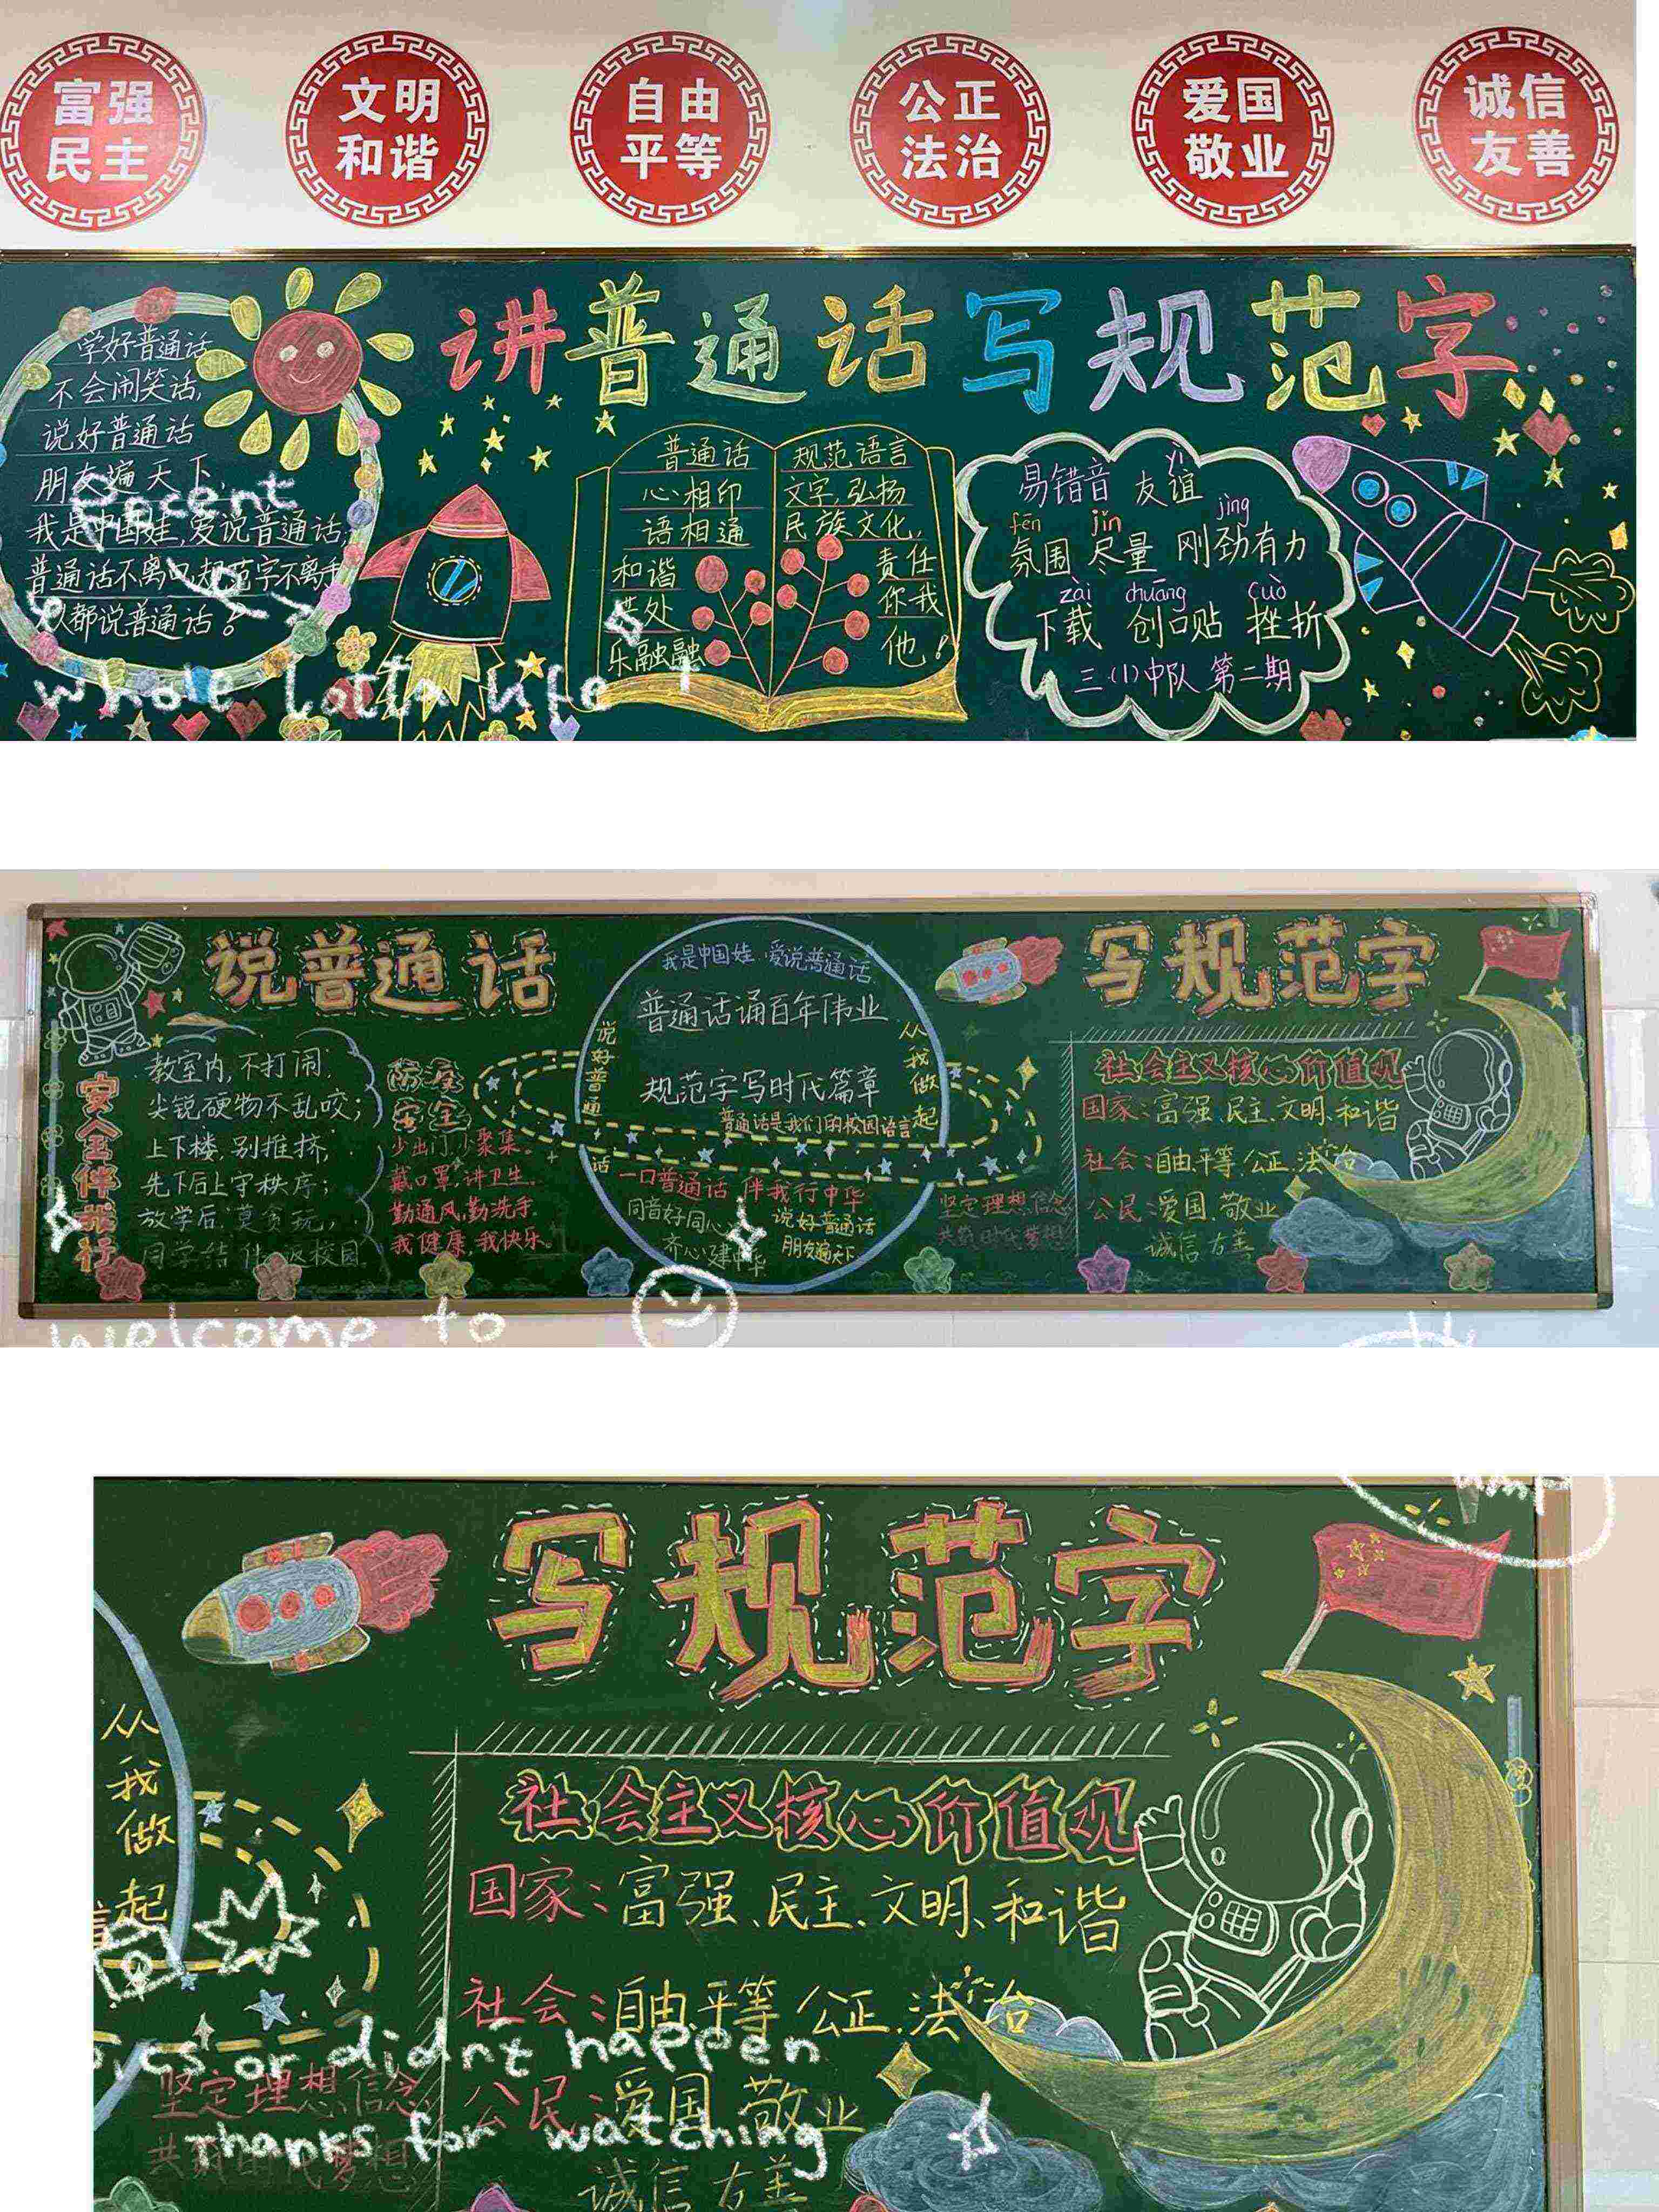 富强
民主
文明
和谐
自由
平等
公正
法治
爱国
敬业
诚信
友善
讲普通话写规范字
学好普通话
不会闹笑话,
说好普通话
朋友遍天下,
我是中国娃,爱说普通话,
普通话不离口,规范字不离手
都说普通话!
Recent
whole lotta life
普通话
心相印
语相通
和谐
共处
乐融融
规范语言
文字,弘扬
民族文化,
责任
你我
他!
易错音 友谊
yì
fēn jǐn jìng
氛围 尽量 刚劲有力
zài chuāng cuò
下载 创口贴 挫折
三(1)中队 第二期
说普通话
写规范字
安全伴我行
教室内,不打闹;
尖锐硬物不乱咬;
上下楼,别推挤;
先下后上守秩序;
放学后,莫贪玩,
同学结伴返校园
防疫
安全
少出门,少聚集。
戴口罩,讲卫生。
勤通风,勤洗手。
我健康,我快乐。
我是中国娃,爱说普通话
普通话诵百年伟业
规范字写时代篇章
普通话是我们的校园语言
说好普通话
从我做起
一口普通话 伴我行中华
同音好同心
齐心建中华
说好普通话
朋友遍天下
坚定理想信念
共筑时代梦想
社会主义核心价值观
国家:富强、民主、文明、和谐
社会:自由、平等、公正、法治
公民:爱国、敬业
诚信 友善
welcome to
写规范字
从我做起
社会主义核心价值观
国家:富强、民主、文明、和谐
社会:自由、平等、公正、法治
pics or didn't happen
坚定理想信念
公民:爱国、敬业
共筑时代梦想
Thanks for watching
诚信 友善